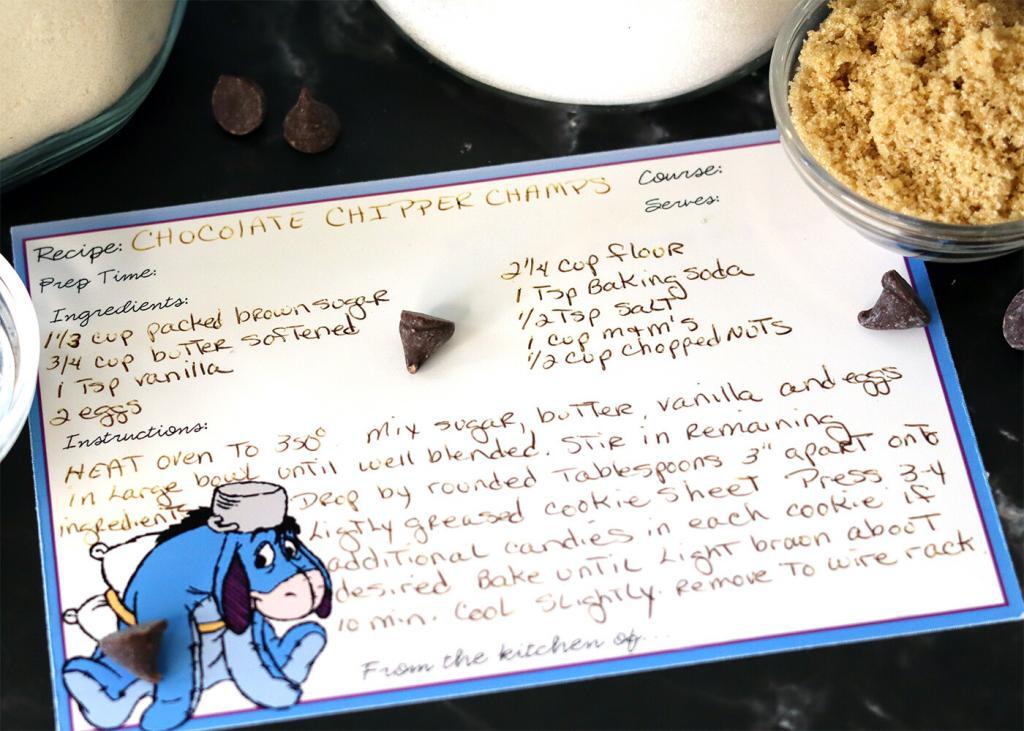 Recipe: CHOCOLATE CHIPPER CHAMPS
Course:
Serves:
Prep Time:
Ingredients:
1 1/3 cup packed brown sugar
3/4 cup butter softened
1 Tsp vanilla
2 eggs
2 1/4 cup flour
1 Tsp Baking soda
1/2 Tsp Salt
1 cup m+m's
1/2 cup chopped NUTS
Instructions:
HEAT oven TO 350° mix sugar, butter, vanilla and eggs
in Large bowl until well blended. Stir in Remaining
ingredients Drop by rounded Tablespoons 3" apart onto
Ligtly greased cookie sheet Press 3-4
additional candies in each cookie if
desired Bake until Light brown about
10 min. Cool Slightly. Remove To wire rack.
From the kitchen of...